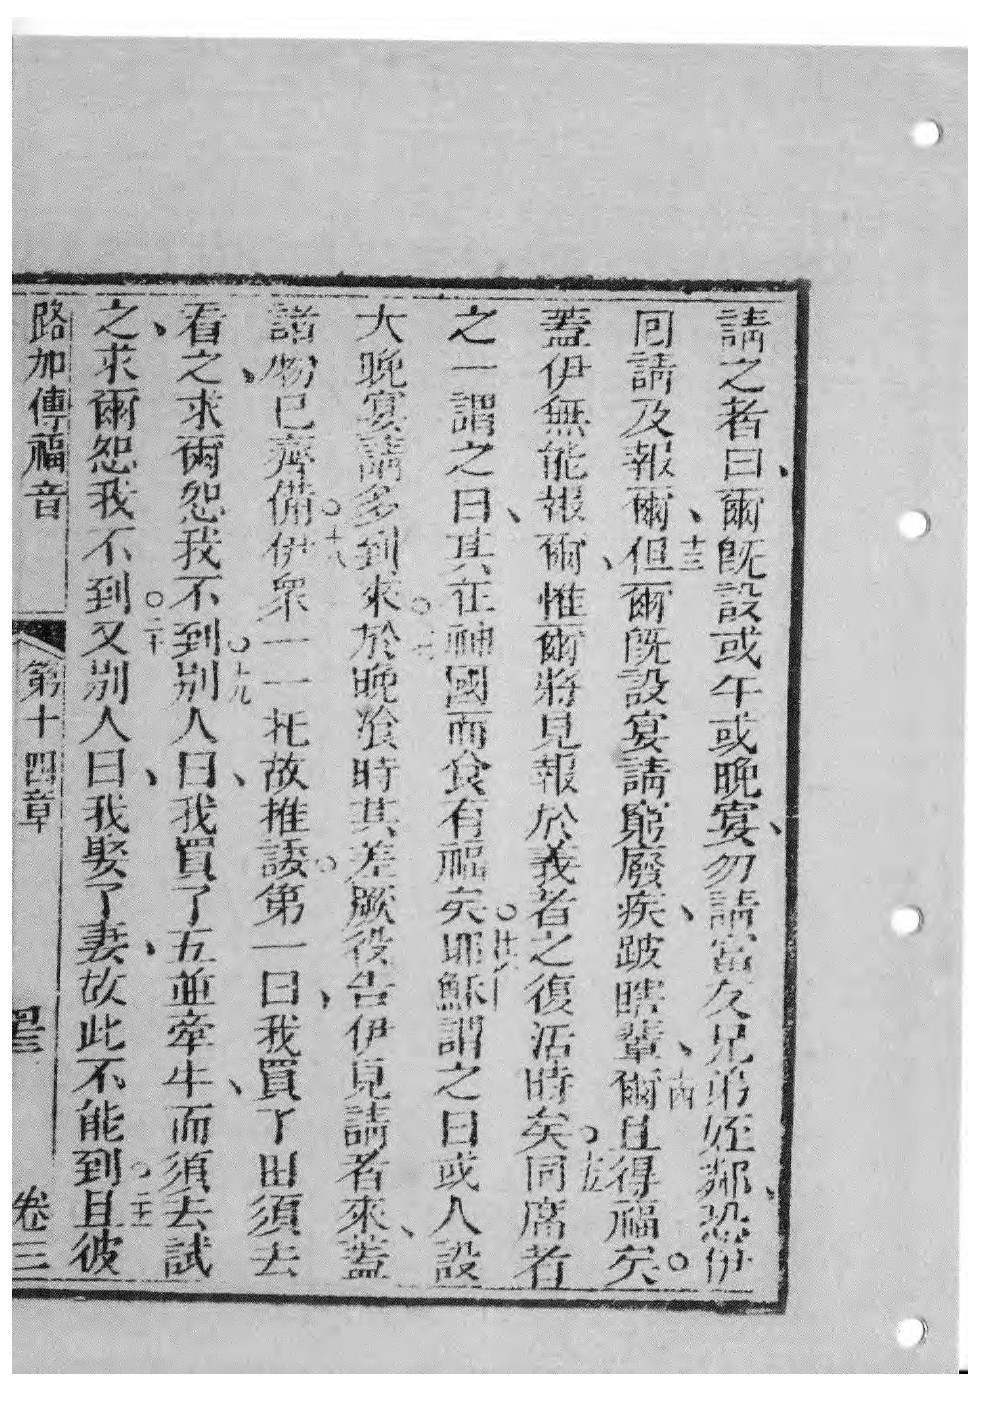 請之者曰、爾旣設或午或晚宴、勿請富友兄弟姪鄰、恐伊
回請及報爾、十三但爾旣設宴請窮廢疾、跛瞎輩、十四爾且得福矣。
蓋伊無能報爾、惟爾將見報於義者之復活時矣。十五同席者
之一謂之曰、其在神國而食有福矣。十六耶穌謂之曰或人設
大晚宴請多到來。十七於晚飡時其差厥役告伊見請者來、蓋
諸物已齊備。十八伊衆一一托故推諉。第一曰、我買了田須去
看之、求爾恕我不到。十九別人曰、我買了五並牽牛、而須去試
之、求爾恕我不到。二十又別人曰、我娶了妻、故此不能到。二十一且彼
路加傳福音 第十四章 卷三